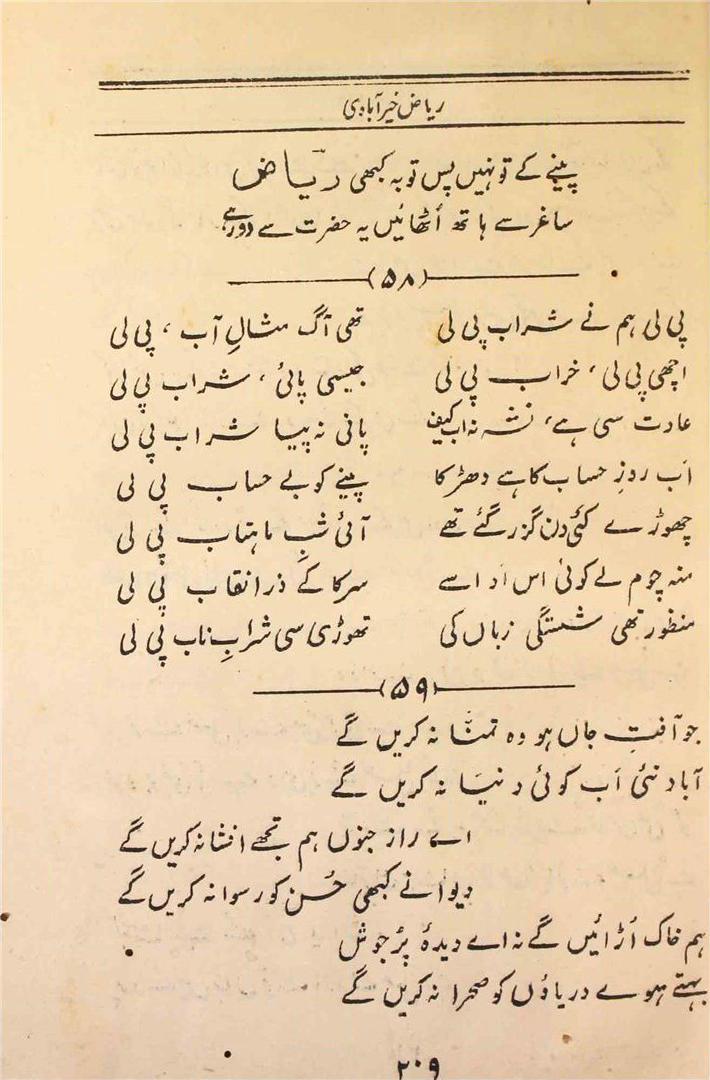 ریاض خیرآبادی
پینے کے تو نہیں پس توبہ کبھی ریاضؔ
ساغر سے ہاتھ اُٹھائیں یہ حضرت سے دور ہے
(۵۸)
پی لی ہم نے شراب پی لی تھی آگ مثالِ آب، پی لی
اچھی پی لی، خراب پی لی جیسی پائی، شراب پی لی
عادت سی ہے، نشہ نہ اب کیف پانی نہ پیا شراب پی لی
اَب روزِ حساب کا ہے دھڑکا پینے کو بے حساب پی لی
چھوڑے کئی دن گزر گئے تھے آئی شبِ ماہتاب پی لی
منہ چوم لے کوئی اس ادا سے سرکا کے ذرا نقاب پی لی
منظور تھی شستگی زباں کی تھوڑی سی شرابِ ناب پی لی
(۵۹)
جو آفتِ جاں ہو وہ تمنّا نہ کریں گے
آباد نئی اَب کوئی دنیا نہ کریں گے
اے راز جنوں ہم تجھے افشا نہ کریں گے
دیوانے کبھی حُسن کو رسوا نہ کریں گے
ہم خاک اُڑائیں گے نہ اے دیدۂ پُرجوش
بہتے ہوے دریاؤں کو صحرا نہ کریں گے
۲۰۹